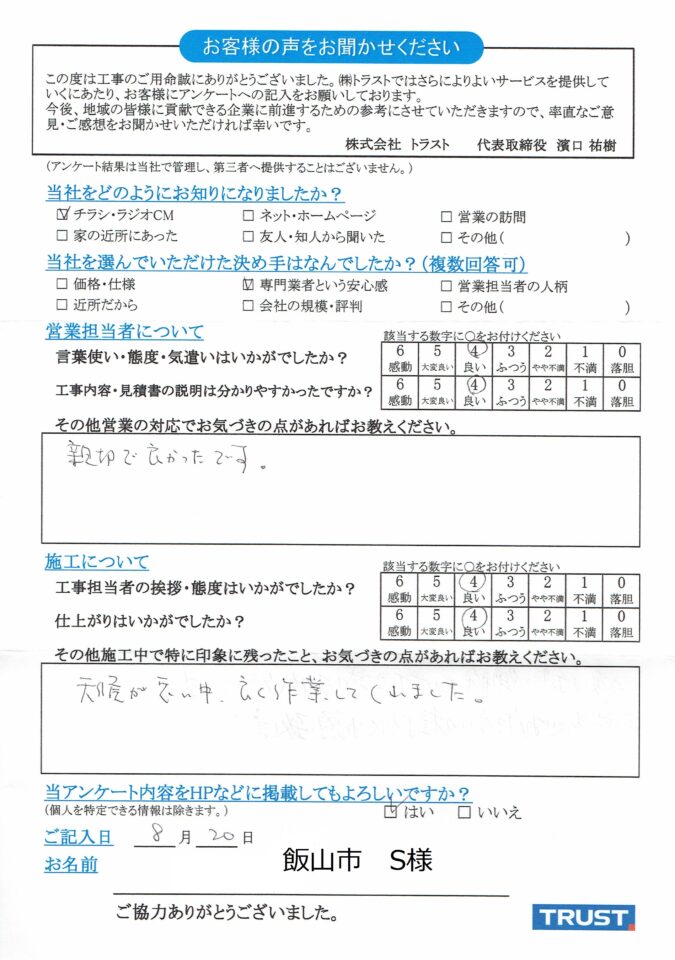 お客様の声をお聞かせください
この度は工事のご用命誠にありがとうございました。㈱トラストではさらによりよいサービスを提供して
いくにあたり、お客様にアンケートへの記入をお願いしております。
今後、地域の皆様に貢献できる企業に前進するための参考にさせていただきますので、率直なご意
見・ご感想をお聞かせいただければ幸いです。
株式会社 トラスト 代表取締役 濱口 祐樹
(アンケート結果は当社で管理し、第三者へ提供することはございません。)
当社をどのようにお知りになりましたか?
☑ チラシ・ラジオCM □ ネット・ホームページ □ 営業の訪問
□ 家の近所にあった □ 友人・知人から聞いた □ その他( )
当社を選んでいただけた決め手はなんでしたか?(複数回答可)
□ 価格・仕様 ☑ 専門業者という安心感 □ 営業担当者の人柄
□ 近所だから □ 会社の規模・評判 □ その他( )
営業担当者について
該当する数字に○をお付けください
言葉使い・態度・気遣いはいかがでしたか?
6 5 4 3 2 1 0
感動 大変良い 良い ふつう やや不満 不満 落胆
工事内容・見積書の説明は分かりやすかったですか?
6 5 4 3 2 1 0
感動 大変良い 良い ふつう やや不満 不満 落胆
その他営業の対応でお気づきの点があればお教えください。
親切で良かったです。
施工について
該当する数字に○をお付けください
工事担当者の挨拶・態度はいかがでしたか?
6 5 4 3 2 1 0
感動 大変良い 良い ふつう やや不満 不満 落胆
仕上がりはいかがでしたか?
6 5 4 3 2 1 0
感動 大変良い 良い ふつう やや不満 不満 落胆
その他施工中で特に印象に残ったこと、お気づきの点があればお教えください。
天候が悪い中、良く作業してくれました。
当アンケート内容をHPなどに掲載してもよろしいですか?
(個人を特定できる情報は除きます。) ☑ はい □ いいえ
ご記入日 8 月 20 日
お名前 飯山市 S様
ご協力ありがとうございました。
TRUST.